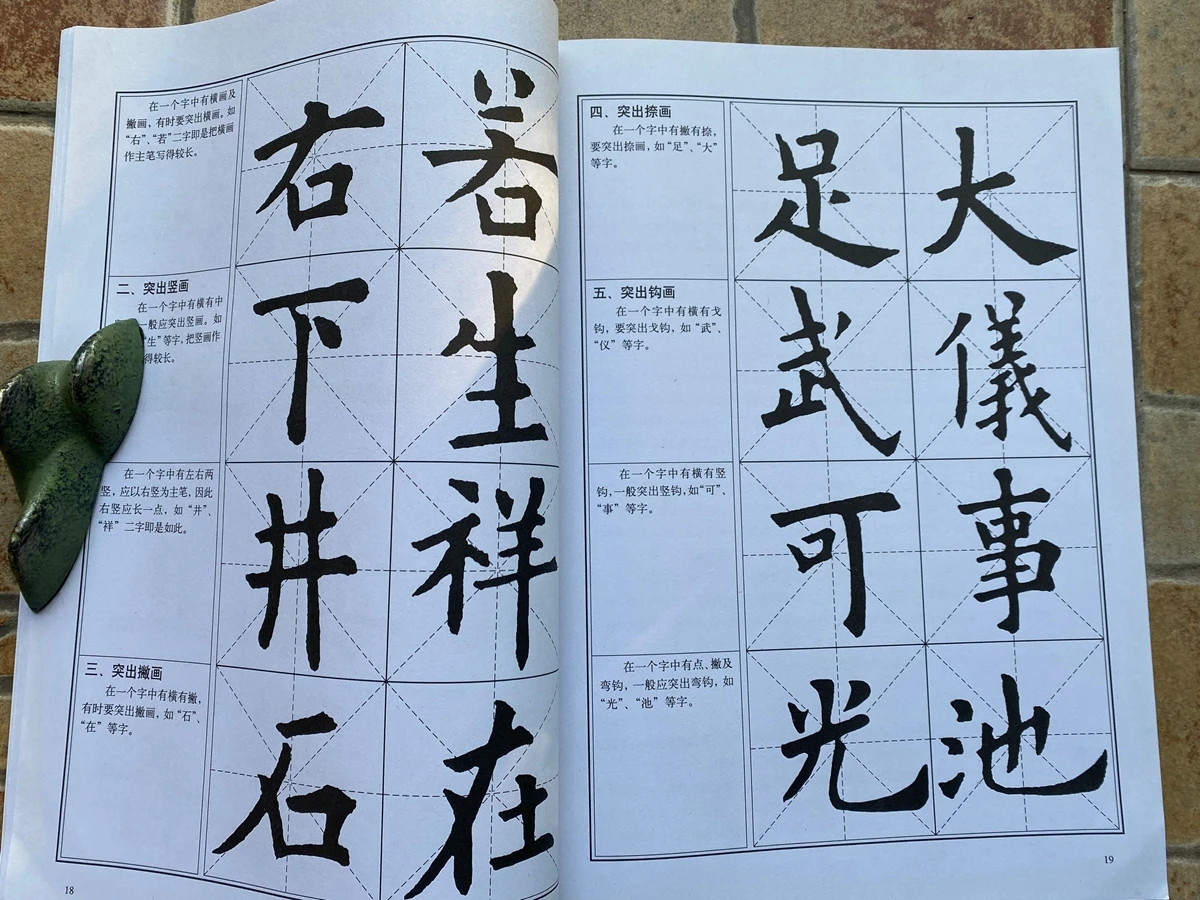 在一个字中有横画及
撇画，有时要突出横画，如
“右”、“若”二字即是把横画
作主笔写得较长。
右 若
二、突出竖画
在一个字中有横有中
一般应突出竖画。如
“生”等字，把竖画作
得较长。
下 生
在一个字中有左右两
竖，应以右竖为主笔，因此
右竖应长一点，如“井”、
“祥”二字即是如此。
井 祥
三、突出撇画
在一个字中有横有撇，
有时要突出撇画，如“石”、
“在”等字。
石 在
18
四、突出捺画
在一个字中有撇有捺，
要突出捺画，如“足”、“大”
等字。
足 大
五、突出钩画
在一个字中有横有戈
钩，要突出戈钩，如“武”、
“仪”等字。
武 儀
在一个字中有横有竖
钩，一般突出竖钩，如“可”、
“事”等字。
可 事
在一个字中有点、撇及
弯钩，一般应突出弯钩，如
“光”、“池”等字。
光 池
19